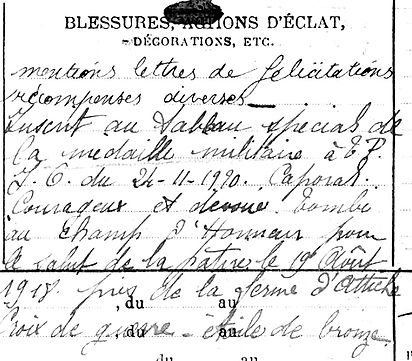 BLESSURES, ACTIONS D'ÉCLAT,
DÉCORATIONS, ETC.
mentions lettres de félicitations
récompenses diverses
Inscrit au Tableau spécial de
la médaille militaire à T.P.
J.O. du 24-11-1920. Caporal
Courageux et dévoué. Tombé
au Champ d'Honneur pour
le salut de la patrie le 19 Août
1918 près de la ferme d'Attiche
, du au
Croix de guerre - étoile de bronze
, du au
du au